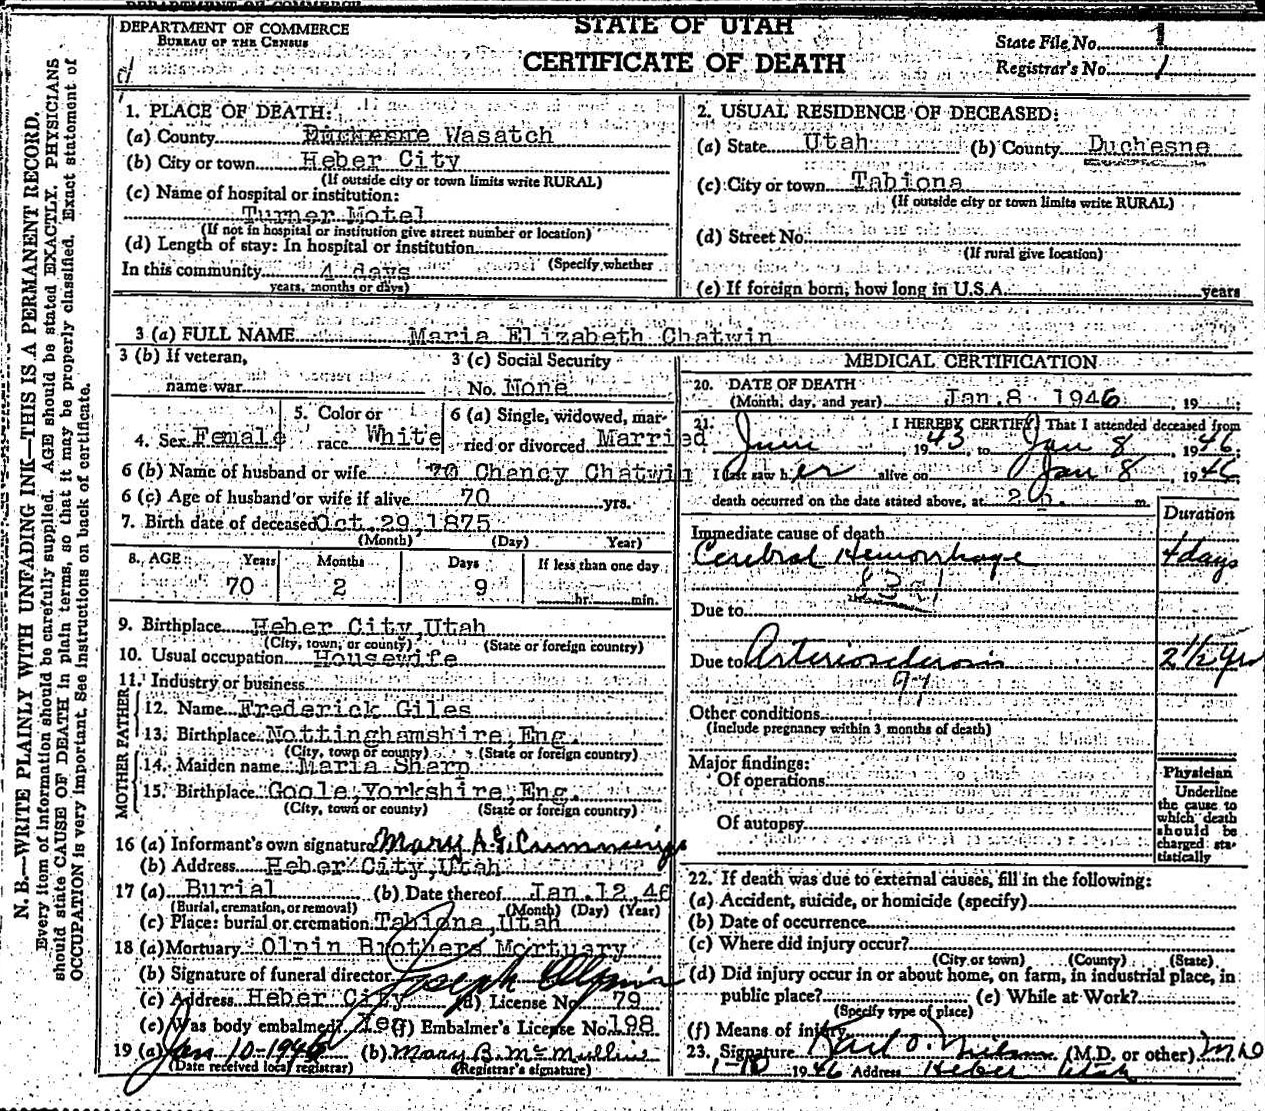 DEPARTMENT OF COMMERCE
BUREAU OF THE CENSUS
STATE OF UTAH
CERTIFICATE OF DEATH
State File No. 1
Registrar's No. 1
N. B.—WRITE PLAINLY WITH UNFADING INK—THIS IS A PERMANENT RECORD.
Every item of information should be carefully supplied. AGE should be stated EXACTLY. PHYSICIANS
should state CAUSE OF DEATH in plain terms, so that it may be properly classified. Exact statement of
OCCUPATION is very important. See instructions on back of certificate.
1. PLACE OF DEATH:
(a) County Duchesne Wasatch
(b) City or town Heber City
(If outside city or town limits write RURAL)
(c) Name of hospital or institution:
Turner Motel
(If not in hospital or institution give street number or location)
(d) Length of stay: In hospital or institution
(Specify whether
In this community 4 days
years, months or days)
2. USUAL RESIDENCE OF DECEASED:
(a) State Utah (b) County Duchesne
(c) City or town Tabiona
(If outside city or town limits write RURAL)
(d) Street No.
(If rural give location)
(e) If foreign born, how long in U.S.A. years
3 (a) FULL NAME Maria Elizabeth Chatwin
3 (b) If veteran,
name war
3 (c) Social Security
No. None
4. Sex Female
5. Color or
race White
6 (a) Single, widowed, mar-
ried or divorced Married
6 (b) Name of husband or wife Chancy Chatwin
6 (c) Age of husband or wife if alive 70 yrs.
7. Birth date of deceased Oct. 29, 1875
(Month) (Day) Year)
8. AGE Years Months Days If less than one day
70 2 9 hr. min.
9. Birthplace Heber City, Utah
(City, town, or county) (State or foreign country)
10. Usual occupation Housewife
11. Industry or business
FATHER
12. Name Frederick Giles
13. Birthplace Nottinghamshire, Eng.
(City, town or county) (State or foreign country)
MOTHER
14. Maiden name Maria Sharp
15. Birthplace Goole, Yorkshire, Eng.
(City, town or county) (State or foreign country)
16 (a) Informant's own signature Mary A. G. Cummings
(b) Address Heber City, Utah
17 (a) Burial (b) Date thereof Jan. 12, 46
(Burial, cremation, or removal) (Month) (Day) (Year)
(c) Place: burial or cremation Tabiona, Utah
18 (a) Mortuary Olpin Brothers Mortuary
(b) Signature of funeral director Joseph Olpin
(c) Address Heber City (d) License No. 79
(e) Was body embalmed? Yes (f) Embalmer's License No. 198
19 (a) Jan 10-1946 (b) Mary B. McMullin
(Date received local registrar) (Registrar's signature)
MEDICAL CERTIFICATION
20. DATE OF DEATH
(Month, day, and year) Jan. 8 1946, 19
21. I HEREBY CERTIFY, That I attended deceased from
June 1943, to Jan 8 1946.
I last saw her alive on Jan 8 1946
death occurred on the date stated above, at 2 m.
Duration
Immediate cause of death
Cerebral Hemorrhage 4 days
Due to
Due to Arteriosclerosis 2 1/2 yrs
97
Other conditions
(Include pregnancy within 3 months of death)
Major findings:
Of operations
Of autopsy
Physician
Underline
the cause to
which death
should be
charged sta-
tistically
22. If death was due to external causes, fill in the following:
(a) Accident, suicide, or homicide (specify)
(b) Date of occurrence
(c) Where did injury occur?
(City or town) (County) (State)
(d) Did injury occur in or about home, on farm, in industrial place, in
public place? (e) While at Work?
(Specify type of place)
(f) Means of injury
23. Signature Karl O. Nielson (M.D. or other) MD
1-10 1946 Address Heber Utah